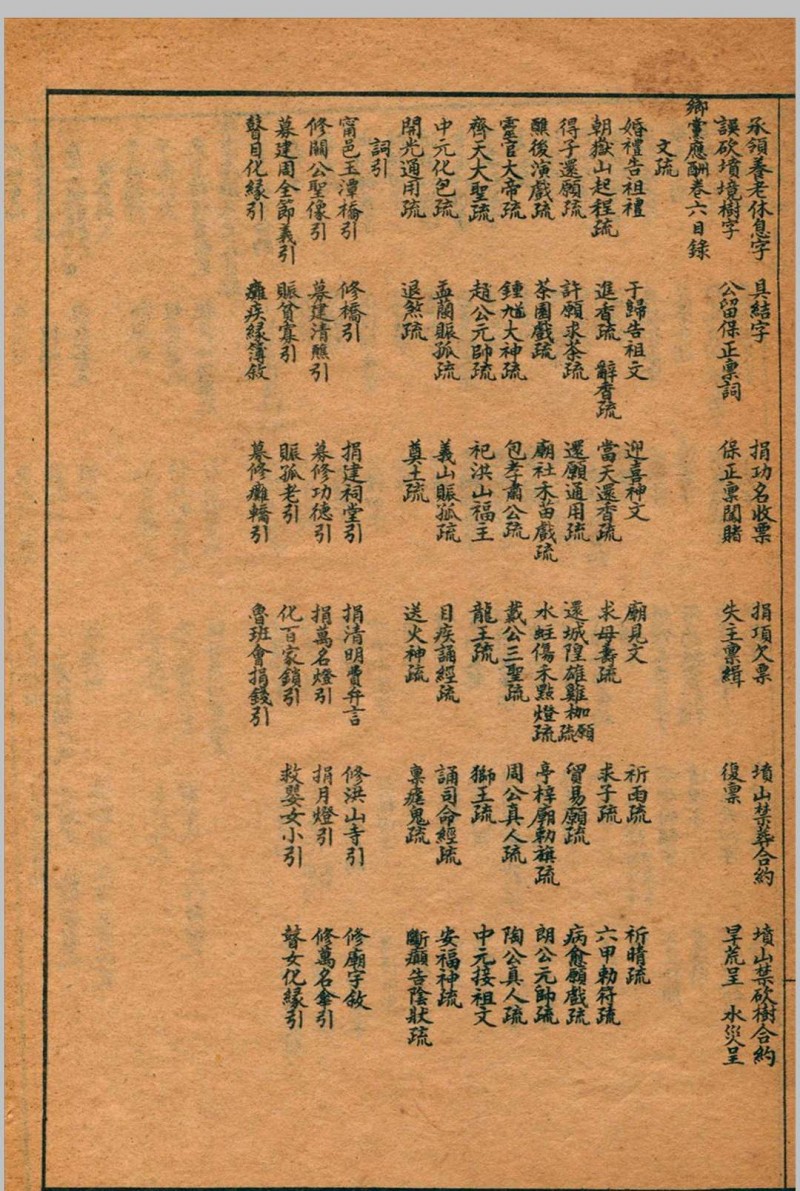 承領養老休息字 具結字 捐功名收票 捐項欠票 墳山禁葬合約 墳山禁砍樹合約
誤砍墳境樹字 公留保正稟詞 保正稟閙賭 失主稟緝 復稟 旱荒呈 水災呈
鄉黨應酬卷六目錄
文疏
婚禮告祖禮 于歸告祖文 迎喜神文 廟見文 祈雨疏 祈晴疏
朝嶽山起程疏 進香疏 辭香疏 當天還香疏 求母壽疏 求子疏 六甲勅符疏
得子還願疏 許願求茶疏 還願通用疏 還城隍雄雞枷願疏 貿易願疏 病愈願戲疏
醮後演戲疏 茶園戲疏 廟社禾苗戲疏 水蛀傷禾點燈疏 亭梓廟勅旗疏 朗公元帥疏
靈官大帝疏 鍾馗大神疏 包孝肅公疏 戴公三聖疏 周公真人疏 陶公真人疏
齊天大聖疏 趙公元帥疏 祀洪山福王 龍王疏 獅王疏 中元接祖文
中元化包疏 盂蘭賑孤疏 義山賑孤疏 目疾誦經疏 誦司命經疏 安福神疏
開光通用疏 退煞疏 奠土疏 送火神疏 稟瘧鬼疏 斷癲告陰狀疏
詞引
甯邑玉潭橋引 修橋引 捐建祠堂引 捐清明費弁言 修洪山寺引 修廟宇敘
修關公聖像引 募建清醮引 募修功德引 捐萬名燈引 捐月燈引 修萬名傘引
募建周全節義引 賑貧寡引 賑孤老引 化百家鎖引 救嬰女小引 瞽女化緣引
瞽目化緣引 癱疾緣簿敘 募修癱轎引 魯班會捐錢引